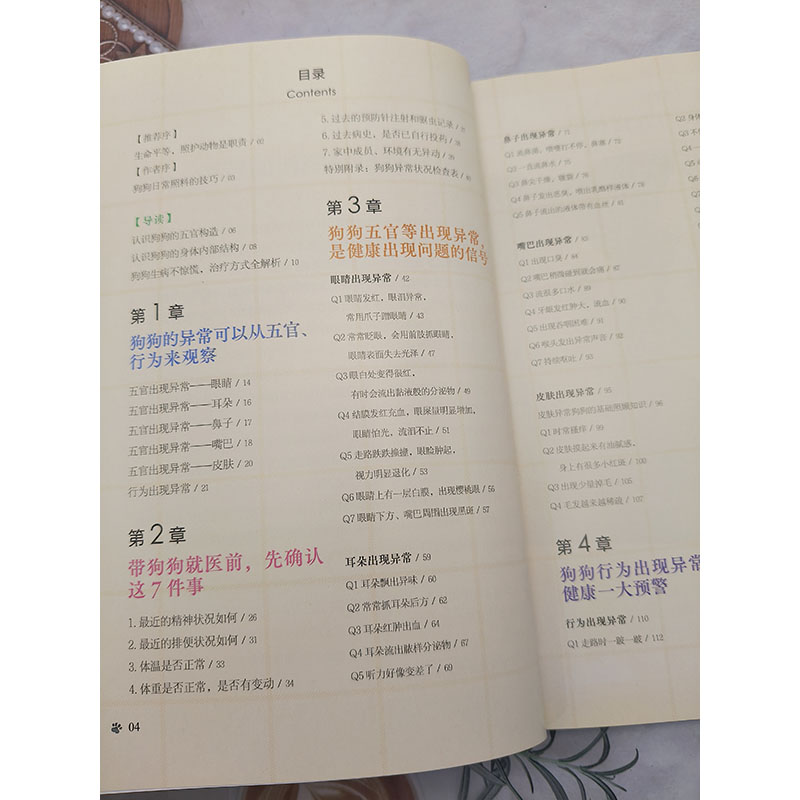 目录
Contents
【推荐序】
生命平等，照护动物是职责 / 02
【作者序】
狗狗日常照料的技巧 / 03
【导读】
认识狗狗的五官构造 / 06
认识狗狗的身体内部结构 / 08
狗狗生病不惊慌，治疗方式全解析 / 10
第1章
狗狗的异常可以从五官、
行为来观察
五官出现异常——眼睛 / 14
五官出现异常——耳朵 / 16
五官出现异常——鼻子 / 17
五官出现异常——嘴巴 / 18
五官出现异常——皮肤 / 20
行为出现异常 / 21
第2章
带狗狗就医前，先确认
这7件事
1. 最近的精神状况如何 / 26
2. 最近的排便状况如何 / 31
3. 体温是否正常 / 33
4. 体重是否正常，是否有变动 / 34
04
5. 过去的预防针注射和驱虫记录 / 37
6. 过去病史，是否已自行投药
7. 家中成员、环境有无异动
特别附录：狗狗异常状况检查表
第3章
狗狗五官等出现异常，
是健康出现问题的信号
眼睛出现异常 / 42
Q1 眼睛发红，眼泪异常，
常用爪子蹭眼睛 / 43
Q2 常常眨眼，会用前肢抓眼睛，
眼睛表面失去光泽 / 47
Q3 眼白处变得很红，
有时会流出黏液般的分泌物 / 49
Q4 结膜发红充血，眼屎量明显增加，
眼睛怕光，流泪不止 / 51
Q5 走路跌跌撞撞，眼睑肿起，
视力明显退化 / 53
Q6 眼睛上有一层白膜，出现樱桃眼 / 56
Q7 眼睛下方、嘴巴周围出现黑斑 / 57
耳朵出现异常 / 59
Q1 耳朵飘出异味 / 60
Q2 常常抓耳朵后方 / 62
Q3 耳朵红肿出血 / 64
Q4 耳朵流出脓样分泌物 / 67
Q5 听力好像变差了 / 69
鼻子出现异常 / 71
Q1 流鼻涕，喷嚏打不停，鼻塞 / 73
Q2 一直流鼻水 / 75
Q3 鼻尖干燥，皲裂 / 76
Q4 鼻子发出恶臭，喷出乳糜样液体 / 78
Q5 鼻子流出的液体带有血丝
嘴巴出现异常
Q1 出现口臭 / 84
Q2 嘴巴稍微碰到就会痛 / 87
Q3 流很多口水 / 89
Q4 牙龈发红肿大，流血 / 90
Q5 出现吞咽困难 / 91
Q6 喉头发出异常声音 / 92
Q7 持续呕吐 / 93
皮肤出现异常 / 95
皮肤异常狗狗的基础照顾知识 / 96
Q1 时常搔痒 / 99
Q2 皮肤摸起来有油腻感，
身上有很多小红斑 / 103
Q3 出现少量掉毛 / 105
Q4 毛发越来越稀疏 / 107
第4章
狗狗行为出现异常
健康一大预警
行为出现异常 / 110
Q1 走路时一跛一跛 / 112